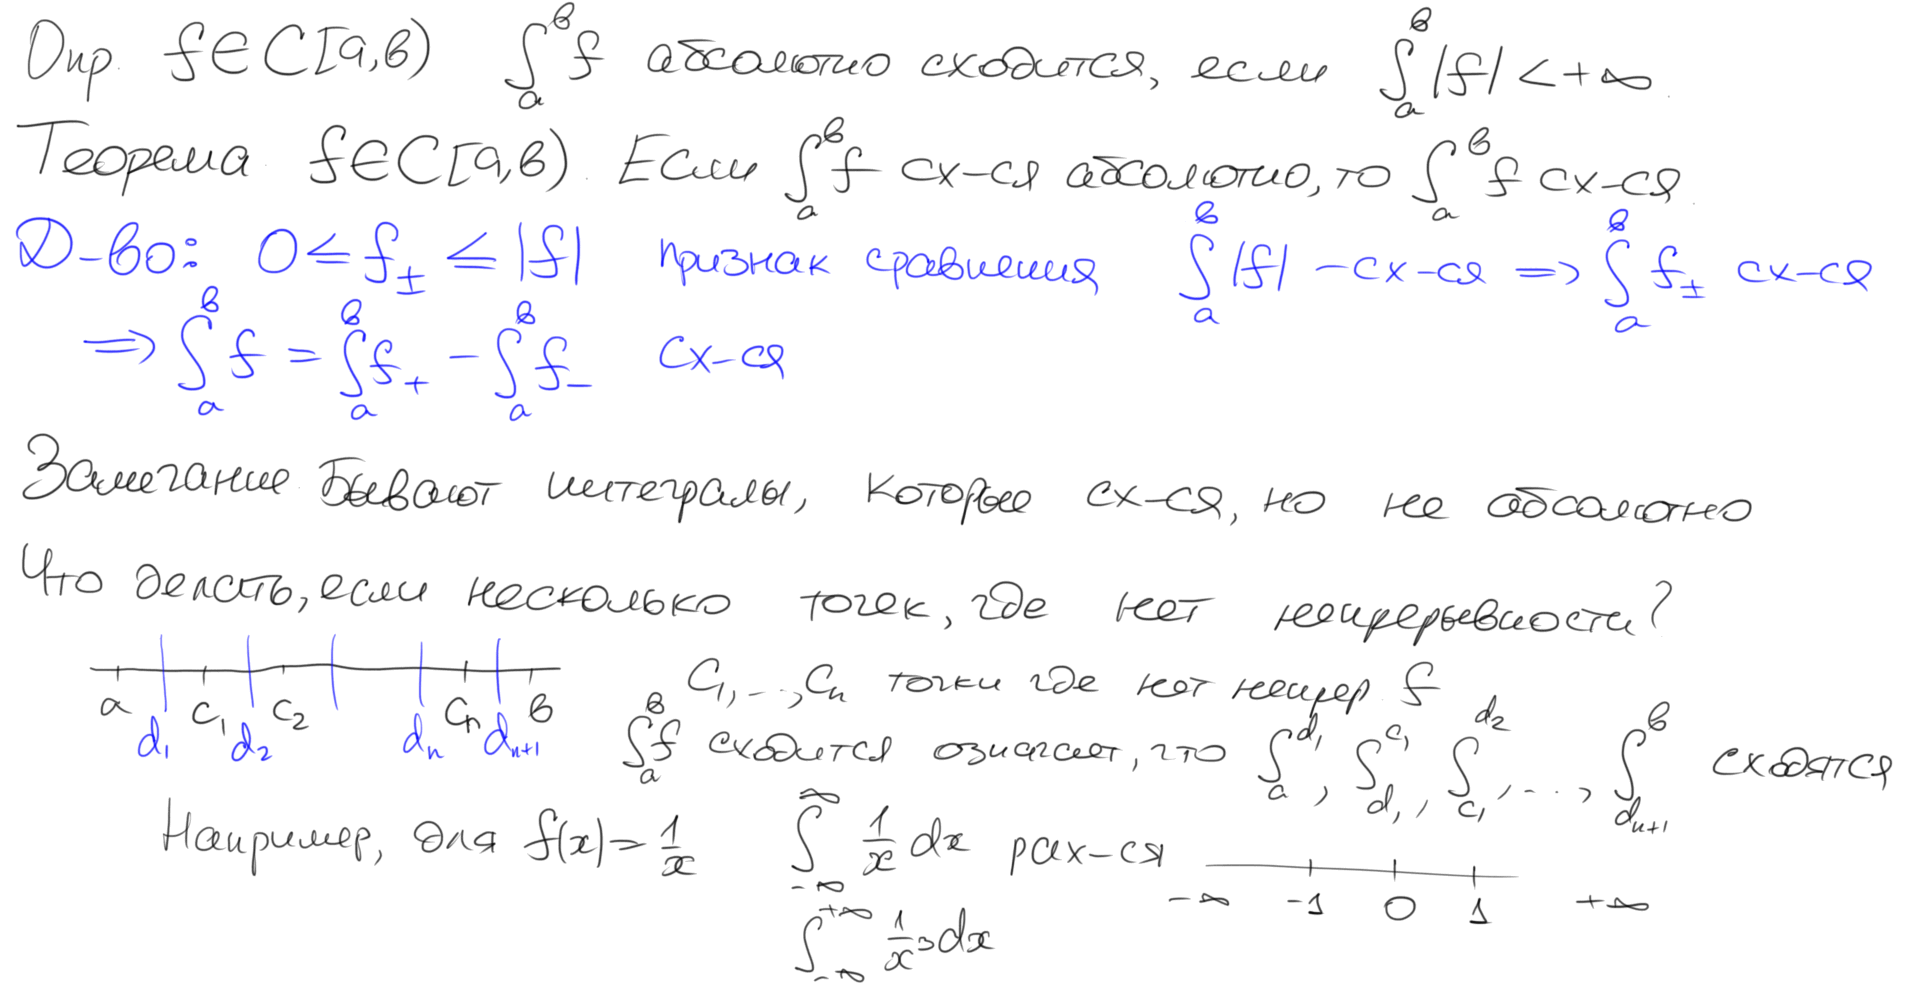 Опр. f∈C[a,b) ∫_a^b f абсолютно сходится, если ∫_a^b |f| < +∞.
Теорема f∈C[a,b). Если ∫_a^b f сх-ся абсолютно, то ∫_a^b f сх-ся.
Д-во: 0 ≤ f_± ≤ |f| признак сравнения ∫_a^b |f| – сх-ся => ∫_a^b f_± сх-ся
=> ∫_a^b f = ∫_a^b f_+ − ∫_a^b f_− сх-ся
Замечание Бывают интегралы, которые сх-ся, но не абсолютно
Что делать, если несколько точек, где нет непрерывности?
a d_1 c_1 d_2 c_2 d_n c_n d_{n+1} b
c_1,...,c_n точки где нет непрер f
∫_a^b f сходится означает, что ∫_a^{d_1}, ∫_{d_1}^{c_1}, ∫_{c_1}^{d_2}, ..., ∫_{d_{n+1}}^b сходятся
Например, для f(x)= 1/x ∫_{-∞}^{∞} 1/x dx рах-ся
-∞ -1 0 1 +∞
∫_{-∞}^{+∞} 1/x³ dx